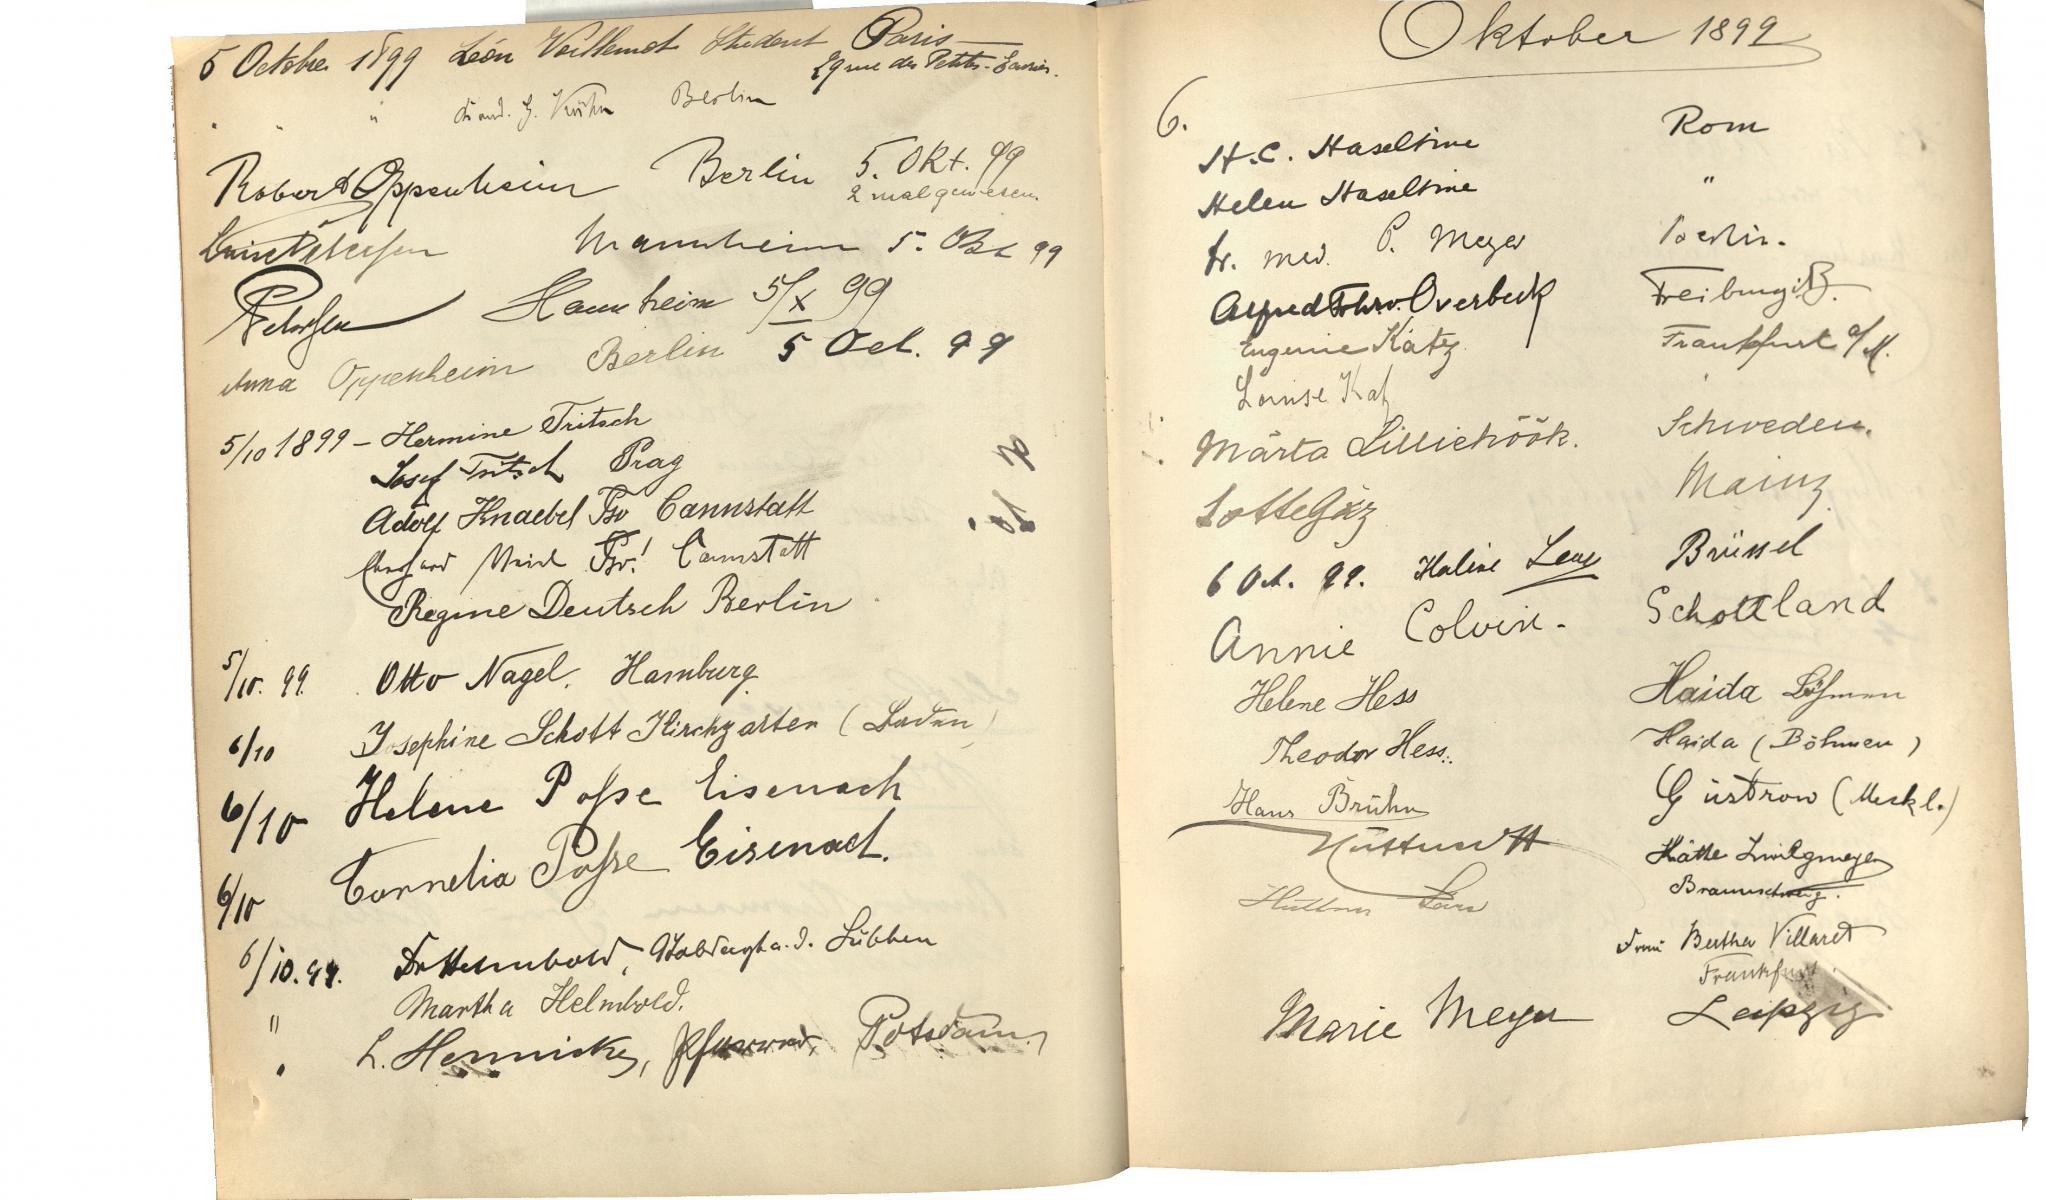 5 Octobre 1899 Léon Veillemot Student Paris
29 rue des Petits-
" " " Cand. G. Kühn Berlin
Robert Oppenheim Berlin 5. Okt. 99
2 mal gewesen.
Petersen Mannheim 5. Okt 99
Petersen Mannheim 5/X 99
Anna Oppenheim Berlin 5 Oct. 99
5/10 1899 - Hermine Tritsch
Josef Tritsch Prag
Adolf Knaebel Cannstatt
Cannstatt
Regine Deutsch Berlin
5/10. 99. Otto Nagel. Hamburg
6/10 Josephine Schott Kirchzarten (Baden)
6/10 Helene Posse Eisenach
6/10 Cornelia Posse Eisenach.
6/10.99. Dr Helmbold, Lübben
" Martha Helmbold.
" L. Hennicke, Potsdam.
Oktober 1899
6.
H.C. Haseltine Rom
Helen Haseltine "
Dr. med. P. Meyer Berlin.
Alfred Frhr v. Overbeck Freiburg i/B.
Eugenie Katz Frankfurt a/M.
Louise Katz
Märta Lilliehöök. Schweden.
Lotte Mainz
6 Oct. 99. Brüssel
Annie Colvin. Schottland
Helene Hess Haida Böhmen
Theodor Hess. Haida (Böhmen)
Hans Brühn Güstrow (Meckl.)
Käthe
Braunschweig.
Frau Bertha Villaret
Frankfurt
Marie Meyer Leipzig